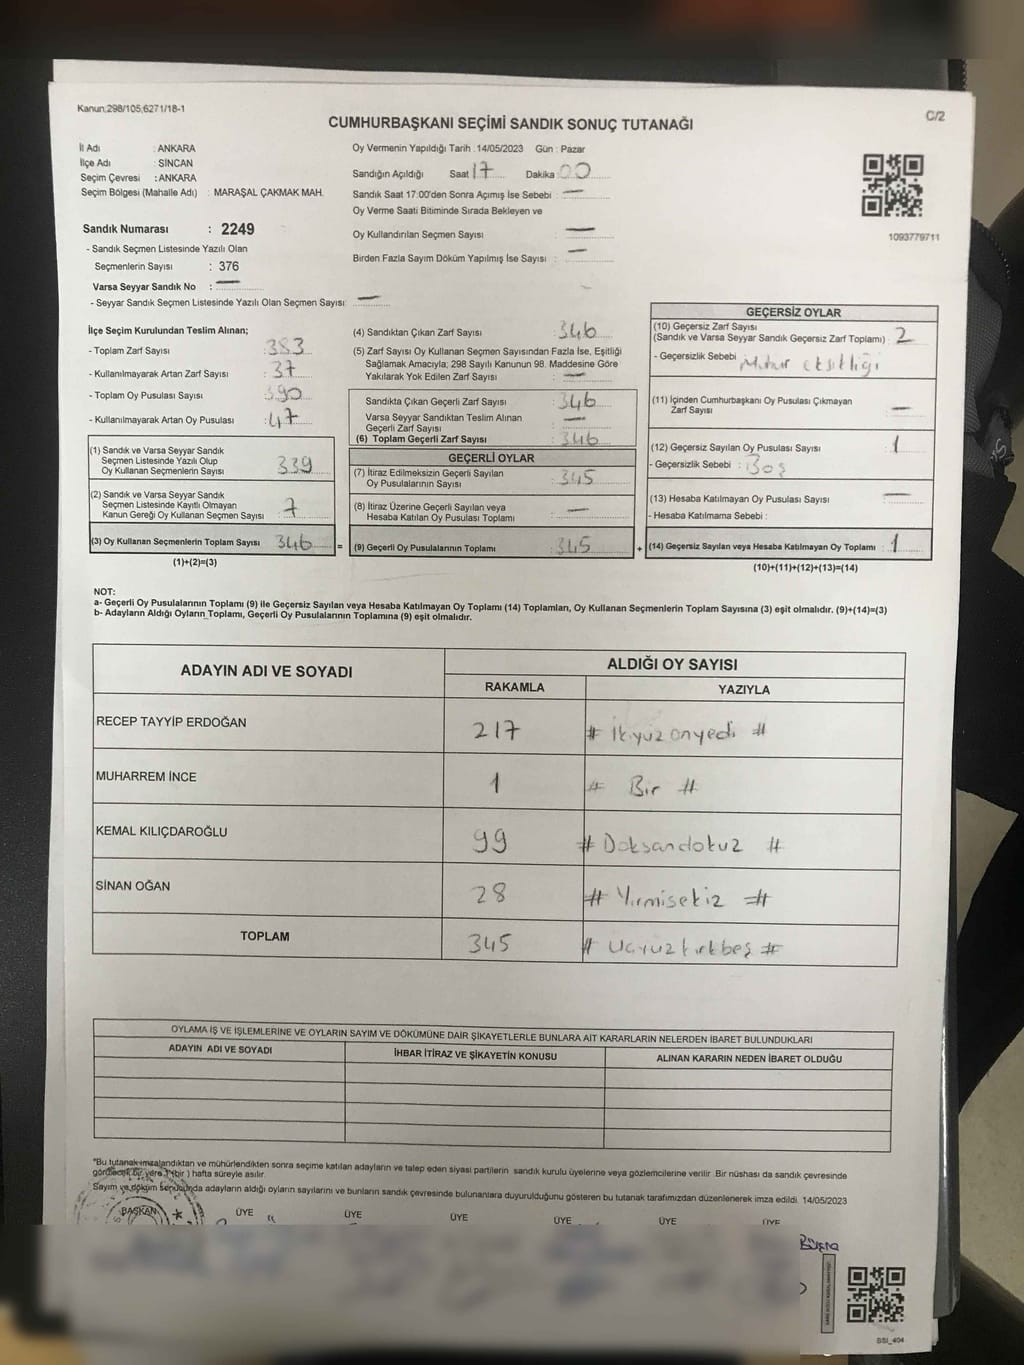 Kanun;298/105,6271/18-1
C/2
CUMHURBAŞKANI SEÇİMİ SANDIK SONUÇ TUTANAĞI
İl Adı : ANKARA
İlçe Adı : SİNCAN
Seçim Çevresi : ANKARA
Seçim Bölgesi (Mahalle Adı) : MARAŞAL ÇAKMAK MAH.
Oy Vermenin Yapıldığı Tarih : 14/05/2023 Gün : Pazar
Sandığın Açıldığı Saat 17 Dakika 00
Sandık Saat 17:00'den Sonra Açımış İse Sebebi : —
Oy Verme Saati Bitiminde Sırada Bekleyen ve
Oy Kullandırılan Seçmen Sayısı : —
Birden Fazla Sayım Döküm Yapılmış İse Sayısı : —
1093779711
Sandık Numarası : 2249
- Sandık Seçmen Listesinde Yazılı Olan
Seçmenlerin Sayısı : 376
Varsa Seyyar Sandık No : —
- Seyyar Sandık Seçmen Listesinde Yazılı Olan Seçmen Sayısı: —
İlçe Seçim Kurulundan Teslim Alınan;
- Toplam Zarf Sayısı : 383
- Kullanılmayarak Artan Zarf Sayısı : 37
- Toplam Oy Pusulası Sayısı : 390
- Kullanılmayarak Artan Oy Pusulası : 47
(1) Sandık ve Varsa Seyyar Sandık
Seçmen Listesinde Yazılı Olup
Oy Kullanan Seçmenlerin Sayısı : 339
(2) Sandık ve Varsa Seyyar Sandık
Seçmen Listesinde Kayıtlı Olmayan
Kanun Gereği Oy Kullanan Seçmen Sayısı : 7
(3) Oy Kullanan Seçmenlerin Toplam Sayısı : 346 =
(1)+(2)=(3)
(4) Sandıktan Çıkan Zarf Sayısı : 346
(5) Zarf Sayısı Oy Kullanan Seçmen Sayısından Fazla İse, Eşitliği
Sağlamak Amacıyla; 298 Sayılı Kanunun 98. Maddesine Göre
Yakılarak Yok Edilen Zarf Sayısı : —
Sandıkta Çıkan Geçerli Zarf Sayısı : 346
Varsa Seyyar Sandıktan Teslim Alınan
Geçerli Zarf Sayısı : —
(6) Toplam Geçerli Zarf Sayısı : 346
GEÇERLİ OYLAR
(7) İtiraz Edilmeksizin Geçerli Sayılan
Oy Pusulalarının Sayısı : 345
(8) İtiraz Üzerine Geçerli Sayılan veya
Hesaba Katılan Oy Pusulası Toplamı : —
(9) Geçerli Oy Pusulalarının Toplamı : 345 +
GEÇERSİZ OYLAR
(10) Geçersiz Zarf Sayısı
(Sandık ve Varsa Seyyar Sandık Geçersiz Zarf Toplamı) : 2
- Geçersizlik Sebebi : Mühür eksikliği
(11) İçinden Cumhurbaşkanı Oy Pusulası Çıkmayan
Zarf Sayısı : —
(12) Geçersiz Sayılan Oy Pusulası Sayısı : 1
- Geçersizlik Sebebi : Boş
(13) Hesaba Katılmayan Oy Pusulası Sayısı : —
- Hesaba Katılmama Sebebi :
(14) Geçersiz Sayılan veya Hesaba Katılmayan Oy Toplamı : 1
(10)+(11)+(12)+(13)=(14)
NOT:
a- Geçerli Oy Pusulalarının Toplamı (9) ile Geçersiz Sayılan veya Hesaba Katılmayan Oy Toplamı (14) Toplamları, Oy Kullanan Seçmenlerin Toplam Sayısına (3) eşit olmalıdır. (9)+(14)=(3)
b- Adayların Aldığı Oyların Toplamı, Geçerli Oy Pusulalarının Toplamına (9) eşit olmalıdır.
ADAYIN ADI VE SOYADI ALDIĞI OY SAYISI
RAKAMLA YAZIYLA
RECEP TAYYİP ERDOĞAN 217 # İkiyüzonyedi #
MUHARREM İNCE 1 # Bir #
KEMAL KILIÇDAROĞLU 99 # Doksandokuz #
SİNAN OĞAN 28 # Yirmisekiz #
TOPLAM 345 # Üçyüzkırkbeş #
OYLAMA İŞ VE İŞLEMLERİNE VE OYLARIN SAYIM VE DÖKÜMÜNE DAİR ŞİKAYETLERLE BUNLARA AİT KARARLARIN NELERDEN İBARET BULUNDUKLARI
ADAYIN ADI VE SOYADI İHBAR İTİRAZ VE ŞİKAYETİN KONUSU ALINAN KARARIN NEDEN İBARET OLDUĞU
*Bu tutanak imzalandıktan ve mühürlendikten sonra seçime katılan adayların ve talep eden siyasi partilerin sandık kurulu üyelerine veya gözlemcilerine verilir. Bir nüshası da sandık çevresinde
görülecek bir yere 1 (bir) hafta süreyle asılır.
Sayım ve döküm sonucunda adayların aldığı oyların sayılarını ve bunların sandık çevresinde bulunanlara duyurulduğunu gösteren bu tutanak tarafımızdan düzenlenerek imza edildi. 14/05/2023
BAŞKAN ÜYE ÜYE ÜYE ÜYE ÜYE ÜYE
Büşra
BSI_404